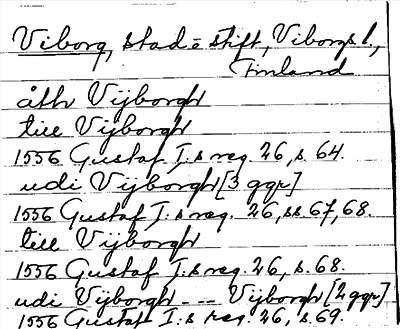 Viborg, stad o stift, Viborgs l.,
Finland
åth Vijborgh
till Vijborgh
1556 Gustaf I:s reg. 26, s. 64.
udi Vijborgh [3 ggr]
1556 Gustaf I:s reg. 26, ss. 67, 68.
till Vijborgh
1556 Gustaf I:s reg. 26, s. 68.
udi Vijborgh --- Vijborgh [2 ggr]
1556 Gustaf I:s reg. 26, s. 69.